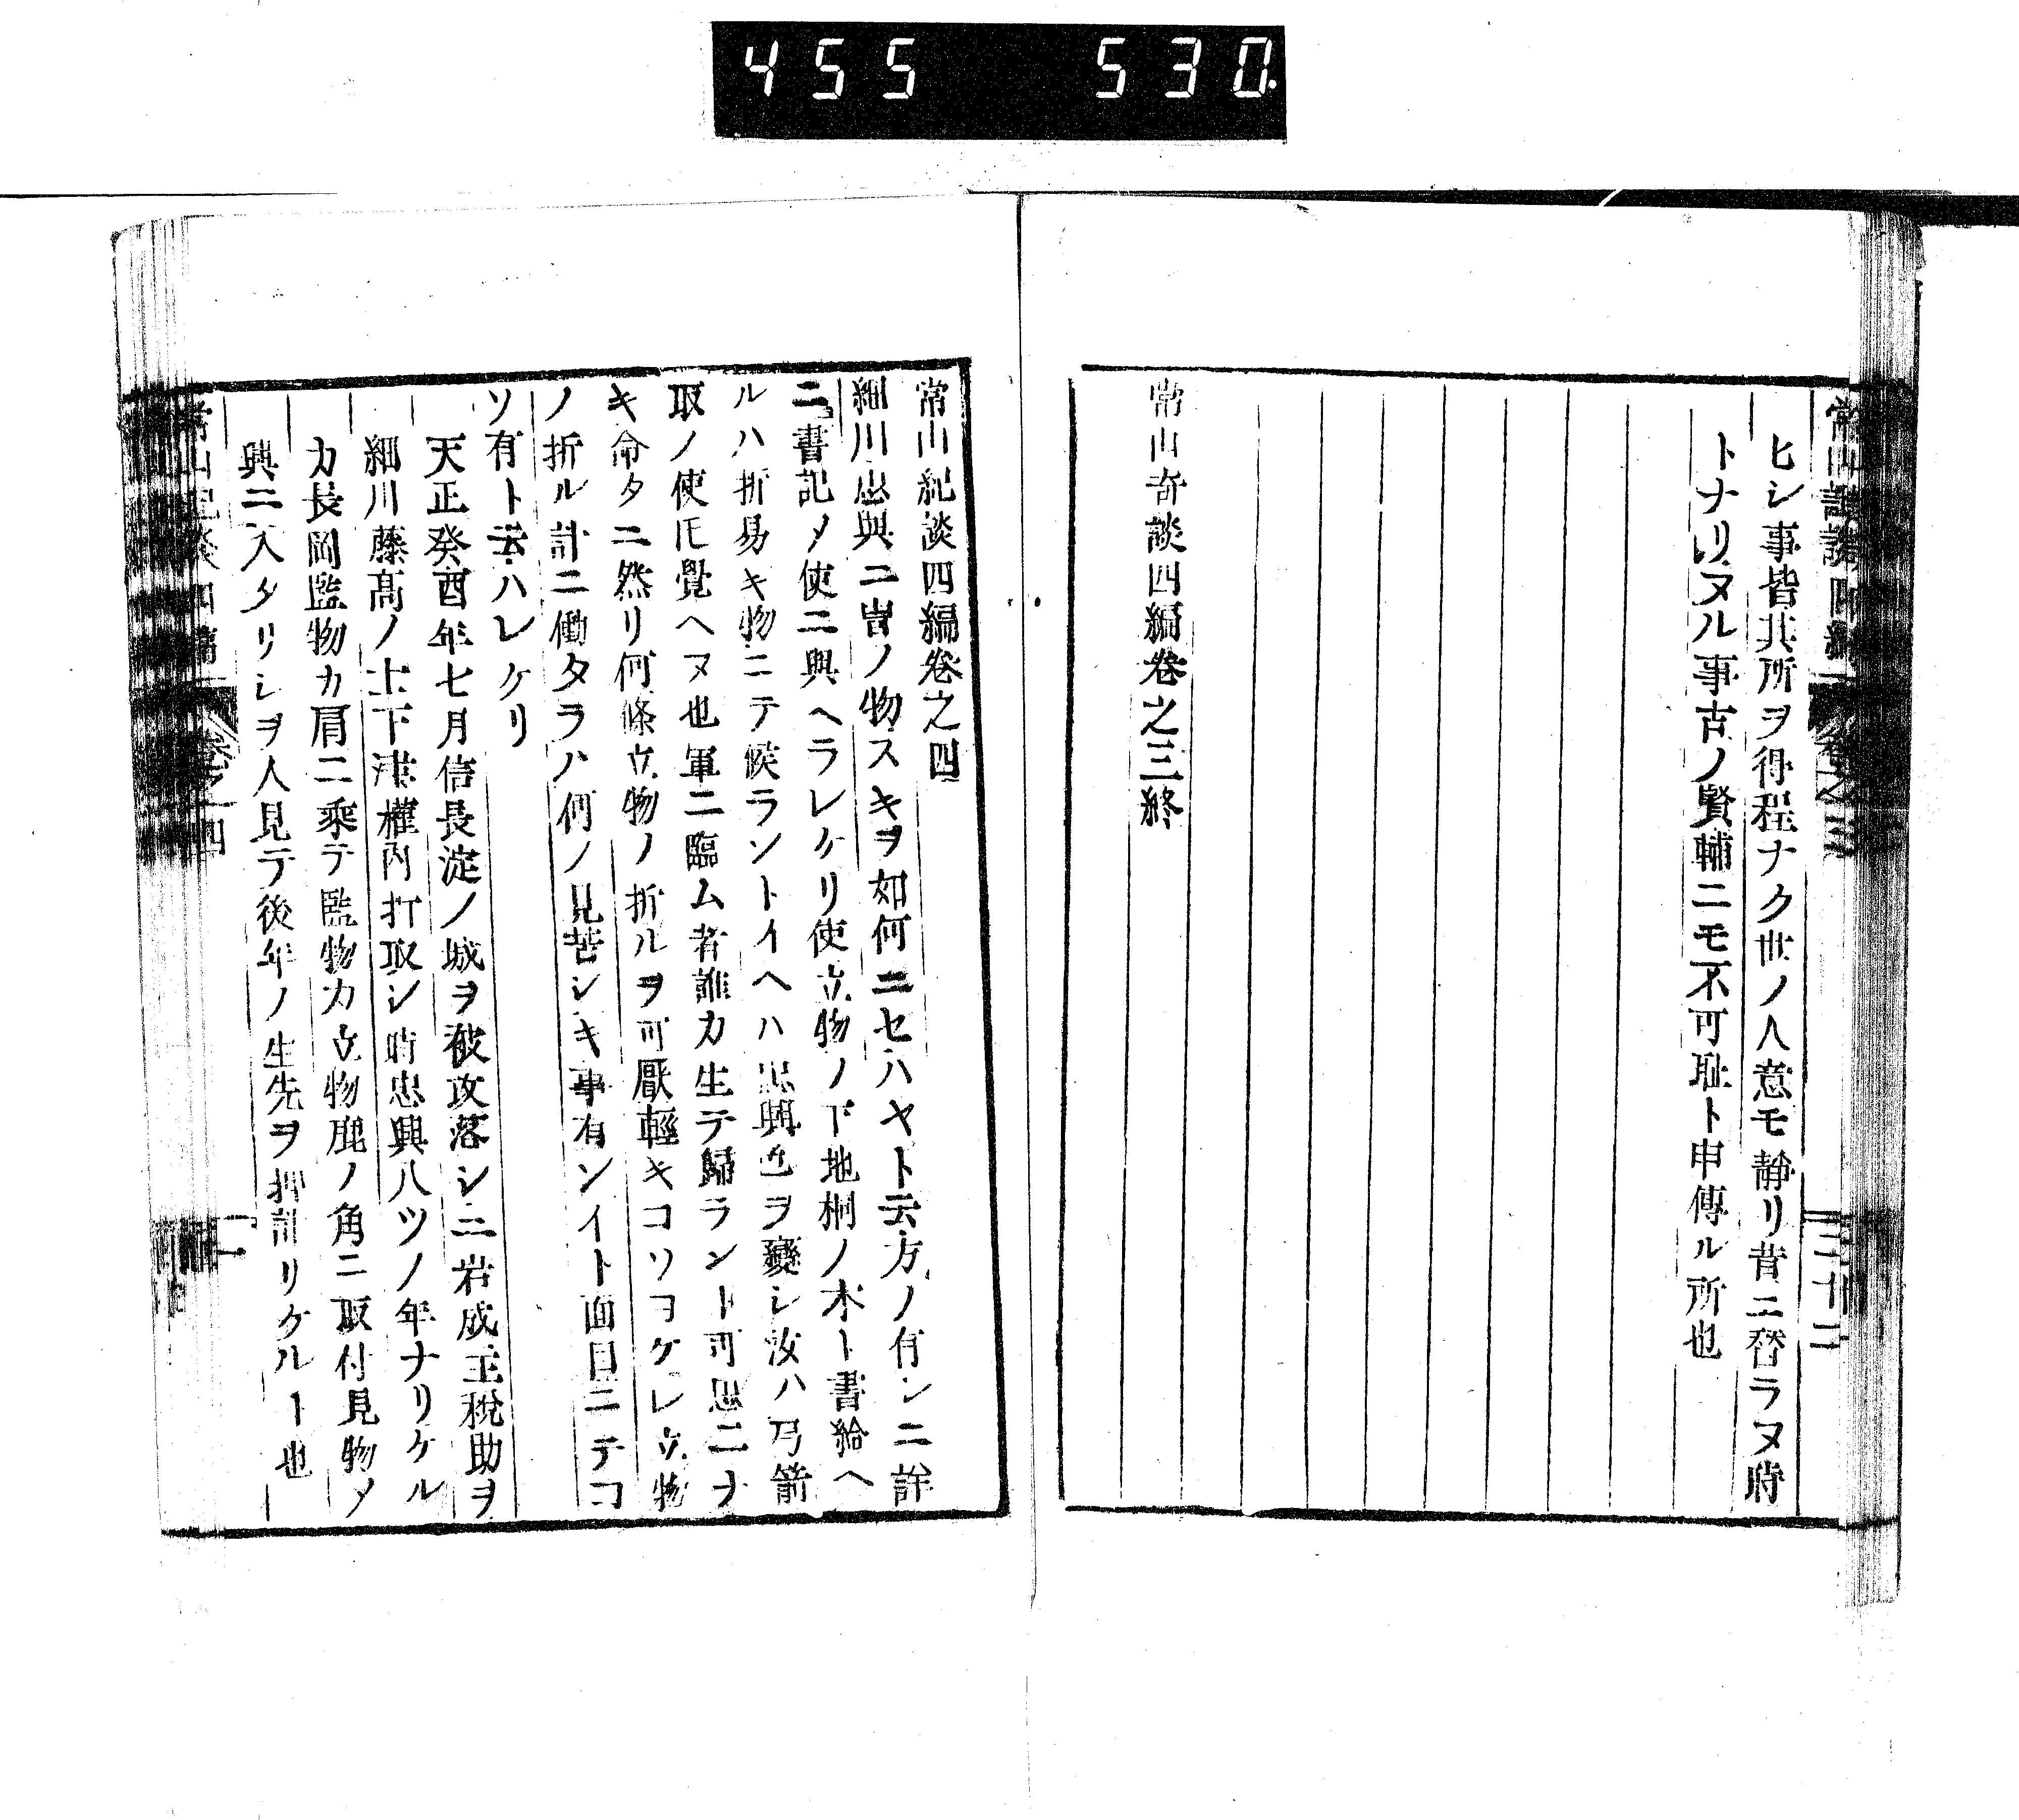 455 530
ヒシ事皆其所ヲ得程ナク世ノ人意モ靜リ昔ニ替ラヌ時
トナリヌル事古ノ賢輔ニモ不可耻ト申傳ル所也
常山奇談四編卷之三終
常山紀談四編卷之四
細川忠興ニ冑ノ物スキヲ如何ニセハヤト云方ノ有シニ詳
ニ書記〆使ニ興ヘラレケリ使立物ノ下地桐ノ木ト書給ヘ
ルハ折易キ物ニテ候ラントイヘハ忠興色ヲ變シ汝ハ弓箭
取ノ使厇覺ヘヌ也軍ニ臨ム者誰カ生テ歸ラント可思ニナ
キ命タニ然リ何條立物ノ折ルヲ可厭輕キコソヨケレ立物
ノ折ル計ニ働タラハ何ノ見苦シキ事有ンイト面目ニテコ
ソ有ト云ハレケリ
天正癸酉年七月信長淀ノ城ヲ被攻落シニ岩成主税助ヲ
細川藤髙ノ士下津權內打取シ時忠興八ツノ年ナリケル
カ長岡監物カ肩ニ乘テ監物カ立物鹿ノ角ニ取付見物〆
興ニ入タリシヲ人見テ後年ノ生先ヲ押計リケルー也